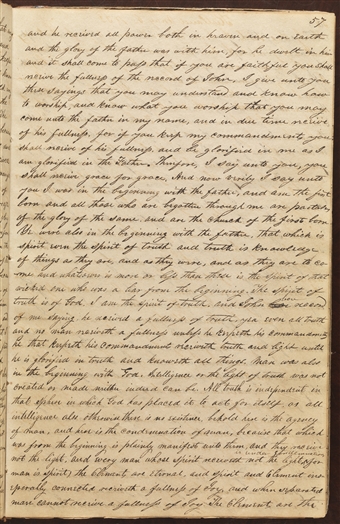 57
and he received all power both in heaven and on Earth
and the glory of the father was with him, for he dwelt in him
and it shall come to pass that if you are faithful you shall
receive the fullness of the record of John, I give unto you
these sayings that you may understand and know how
to worship, and know what you worship that you may
come unto the father in my name, and in due time receive
of his fullness, for if you keep my commandments you
shall receive of his fullness, and be glorified in me as I
am glorified in the Father. Therefore, I say unto you, you
shall receive grace for grace. And now verily I say unto
you I was in the beginning with the father, and am the first
born and all those who are begotten through me are partakers
of the glory of the same, and are the church of the first born
Ye were also in the beginning with the father, that which is
spirit even the spirit of truth and truth is knowledge
of things as they are, and as they were, and as they are to co
me and whatsoever is more or less than these is the spirit of that
wicked one who was a liar from the beginning. The spirit of
truth is of God. I am the spirit of truth, and John bore record
of me saying he received a fullness of truth yea even all truth
and no man receiveth a fullness unless he keepeth his commandments
he that keepeth his commandments receiveth truth and light until
he is glorified in truth and knoweth all things. Man was also
in the beginning with God. Intelligence or the light of truth was not
created or made neither indeed can be. All truth is independent in
that sphere in which God has placed it to act for itself as all
intelligence also otherwise there is no existence behold here is the agency
of man, and here is the condemnation of man, because that which
was from the beginning is plainly manifest unto them, and they receive
not the light, and every man whose spirit receiveth not the light is under condemnation for
man is spirit, the Element are eternal and spirit and Element inse
perably connected receiveth a fullness of Joy, and when separated
man cannot receive a fullness of Joy. The Element are the